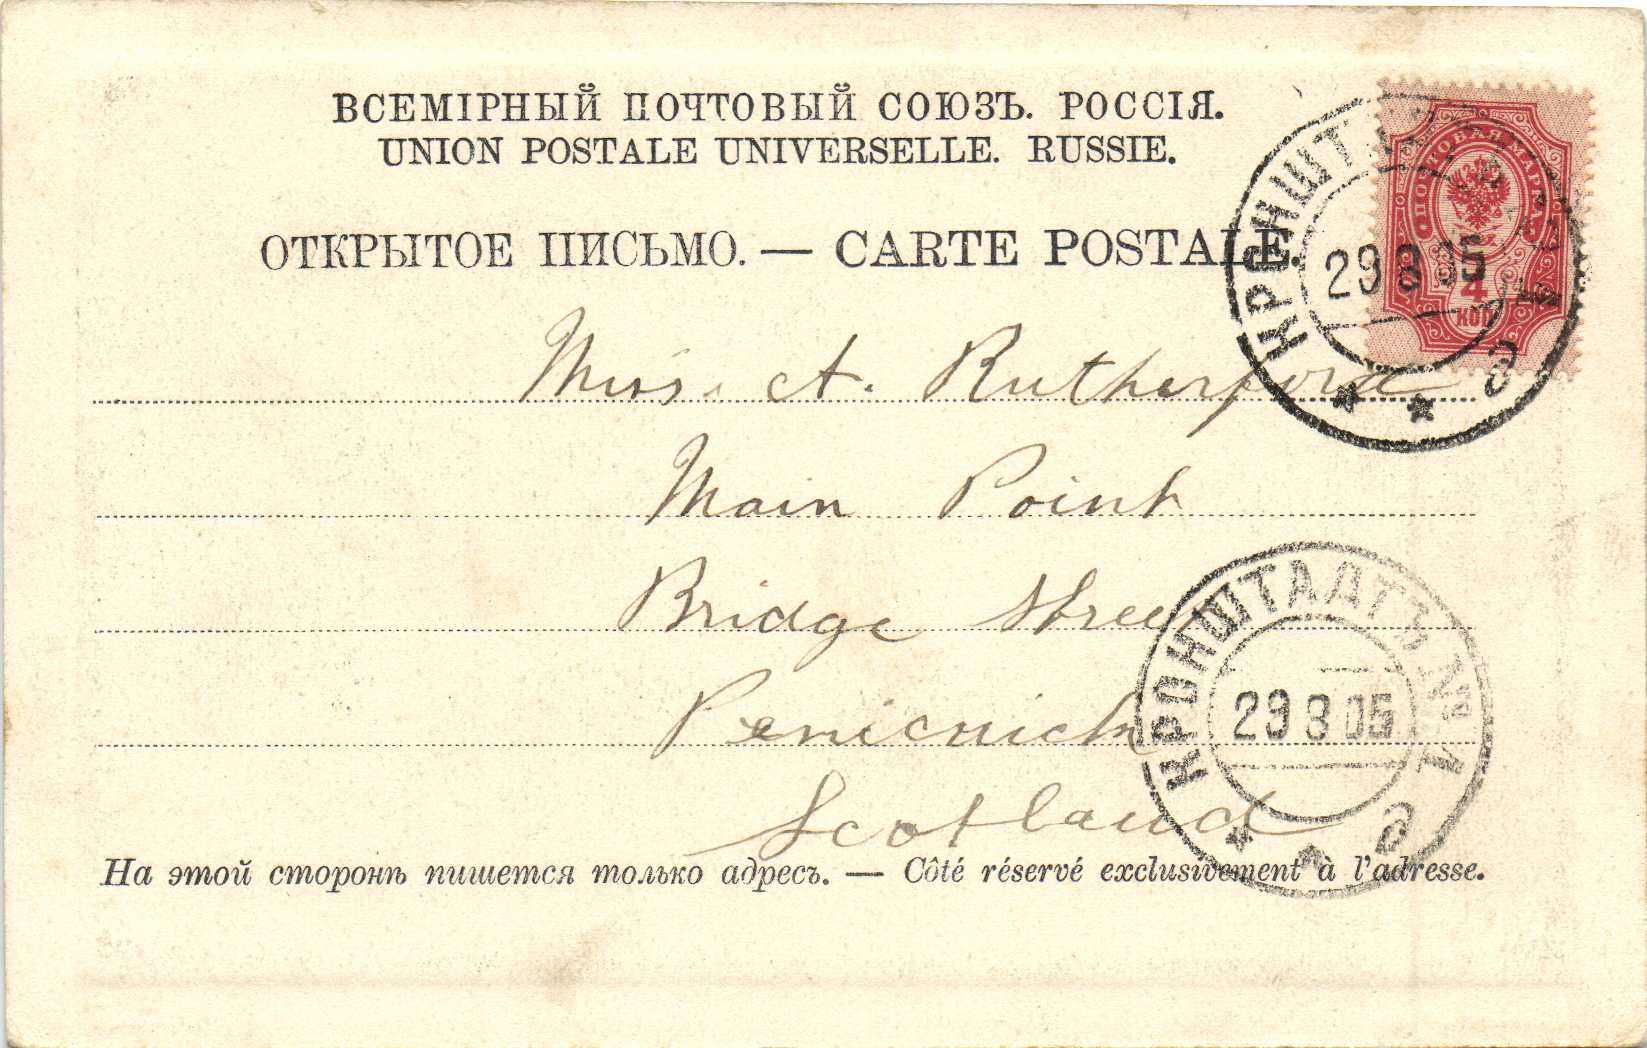 ВСЕМІРНЫЙ ПОЧТОВЫЙ СОЮЗЪ. РОССІЯ.
UNION POSTALE UNIVERSELLE. RUSSIE.
ОТКРЫТОЕ ПИСЬМО. — CARTE POSTALE.
ПОЧТОВАЯ МАРКА
4
КОП
КРОНШТАДТЪ
29 8 05
1
а
Miss. A. Rutherford
Main Point
Bridge Street
Penicuick
Scotland
КРОНШТАДТЪ № 1
29 8 05
а
На этой сторонѣ пишется только адресъ. — Côté réservé exclusivement à l'adresse.